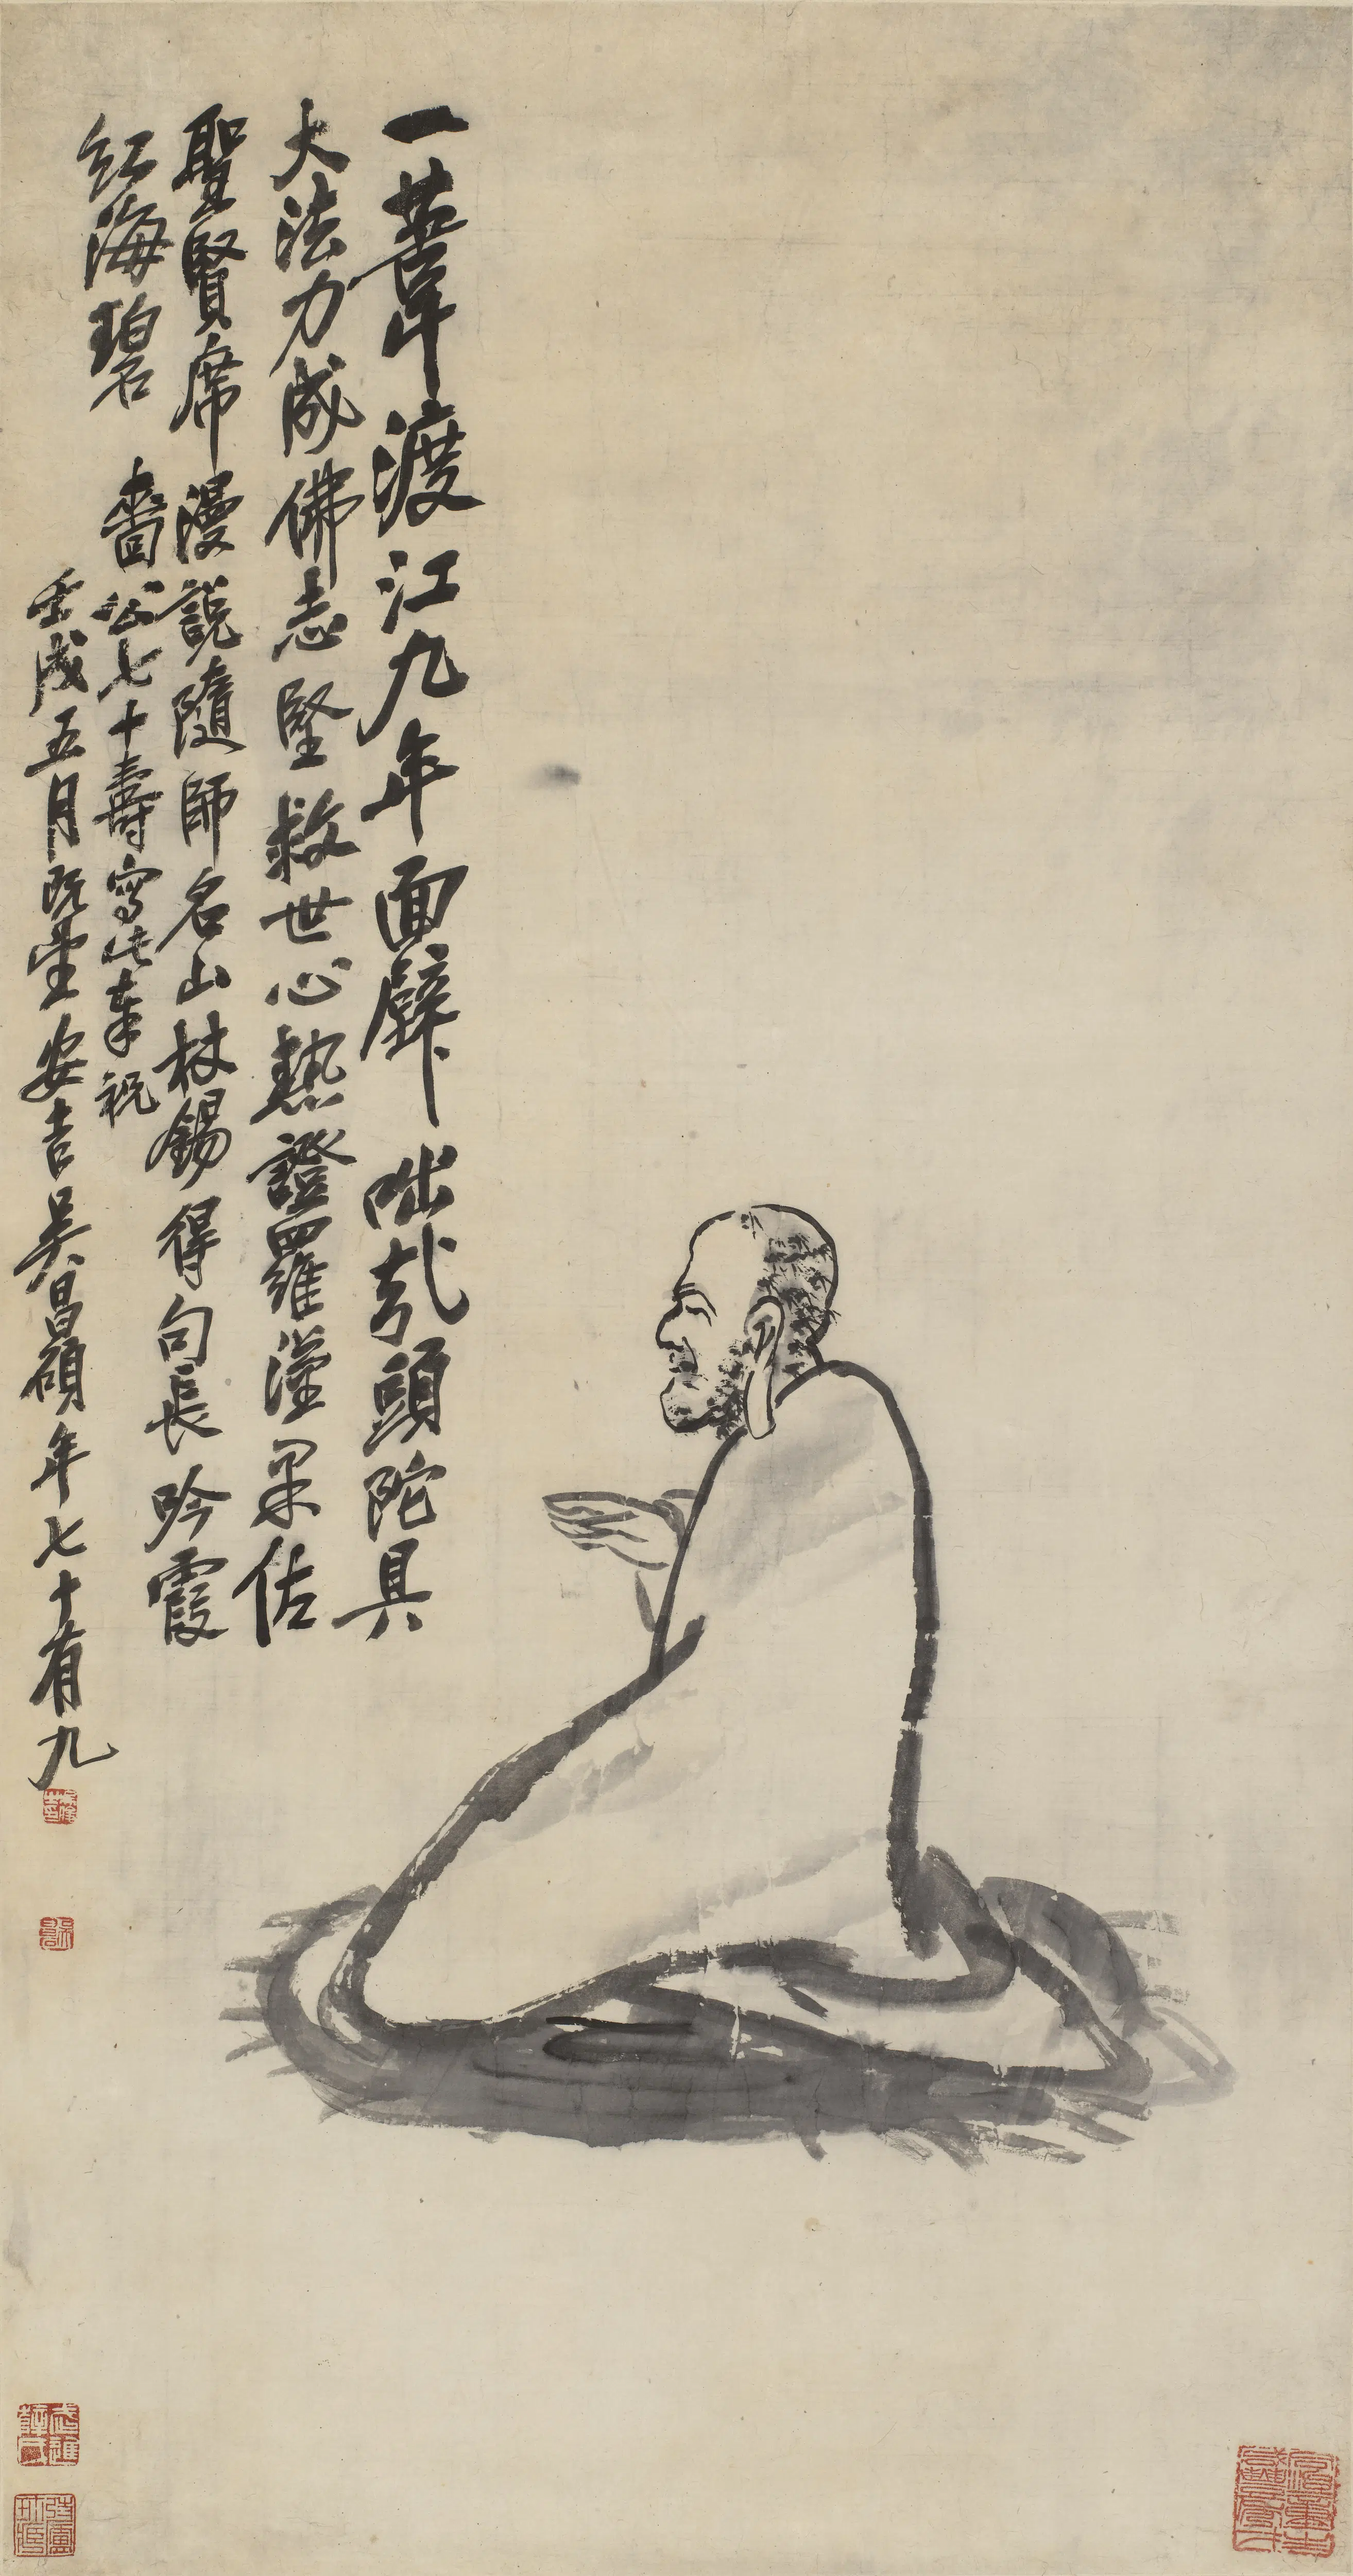 一葦渡江九年面壁咄哉頭陀具
大法力成佛志堅救世心熱證羅漢果佐
聖賢席漫說隨師名山杖錫得句長吟霞
紅海碧
嗇公七十壽寫此奉祝
壬戌五月既望安吉吳昌碩年七十有九